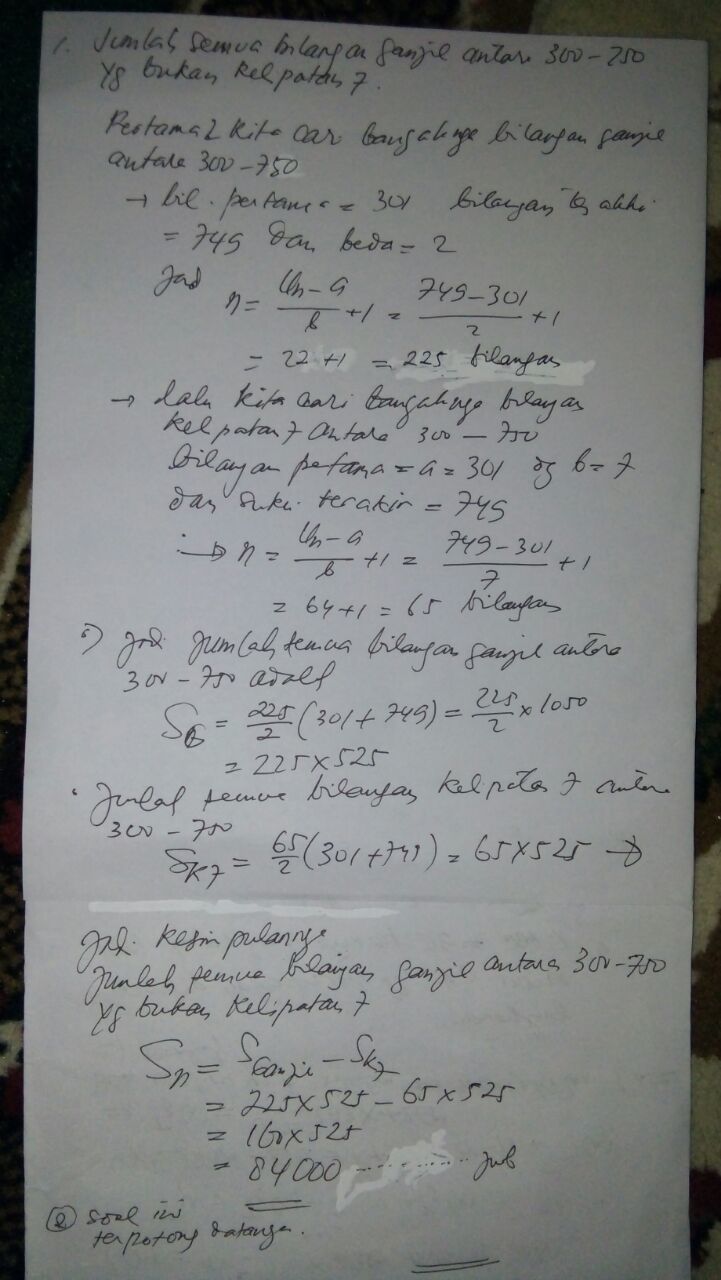 1. Jumlah semua bilangan ganjil antara 300 - 750
yg bukan kelpatan 7.
Pertama2 kita cari banyaknya bilangan ganjil
antara 300 - 750
→ bil. pertama = 301 bilangan terakhi
= 749 dan beda = 2
Jad
n = Un - a / b + 1 = 749 - 301 / 2 + 1
= 22 + 1 = 225 bilangan
→ lalu kita cari banyaknya bilangan
kelpatan 7 antara 300 - 750
bilangan pertama = a = 301 dg b = 7
dan suku terakir = 749
→ n = Un - a / b + 1 = 749 - 301 / 7 + 1
= 64 + 1 = 65 bilangan
Jadi Jumlah semua bilangan ganjil antara
300 - 750 adalf
SG = 225/2 (301 + 749) = 225/2 x 1050
= 225 x 525
Jumlah semua bilangan kelipatan 7 antara
300 - 750
SK7 = 65/2 (301 + 749) = 65 x 525
Jad. kesimpulannya
Jumlah semua bilangan ganjil antara 300 - 750
yg bukan kelipatan 7
Sn = Sganjil - SK7
= 225 x 525 - 65 x 525
= 160 x 525
= 84000 ........... Jwb
② soal ini
terpotong datangnya.